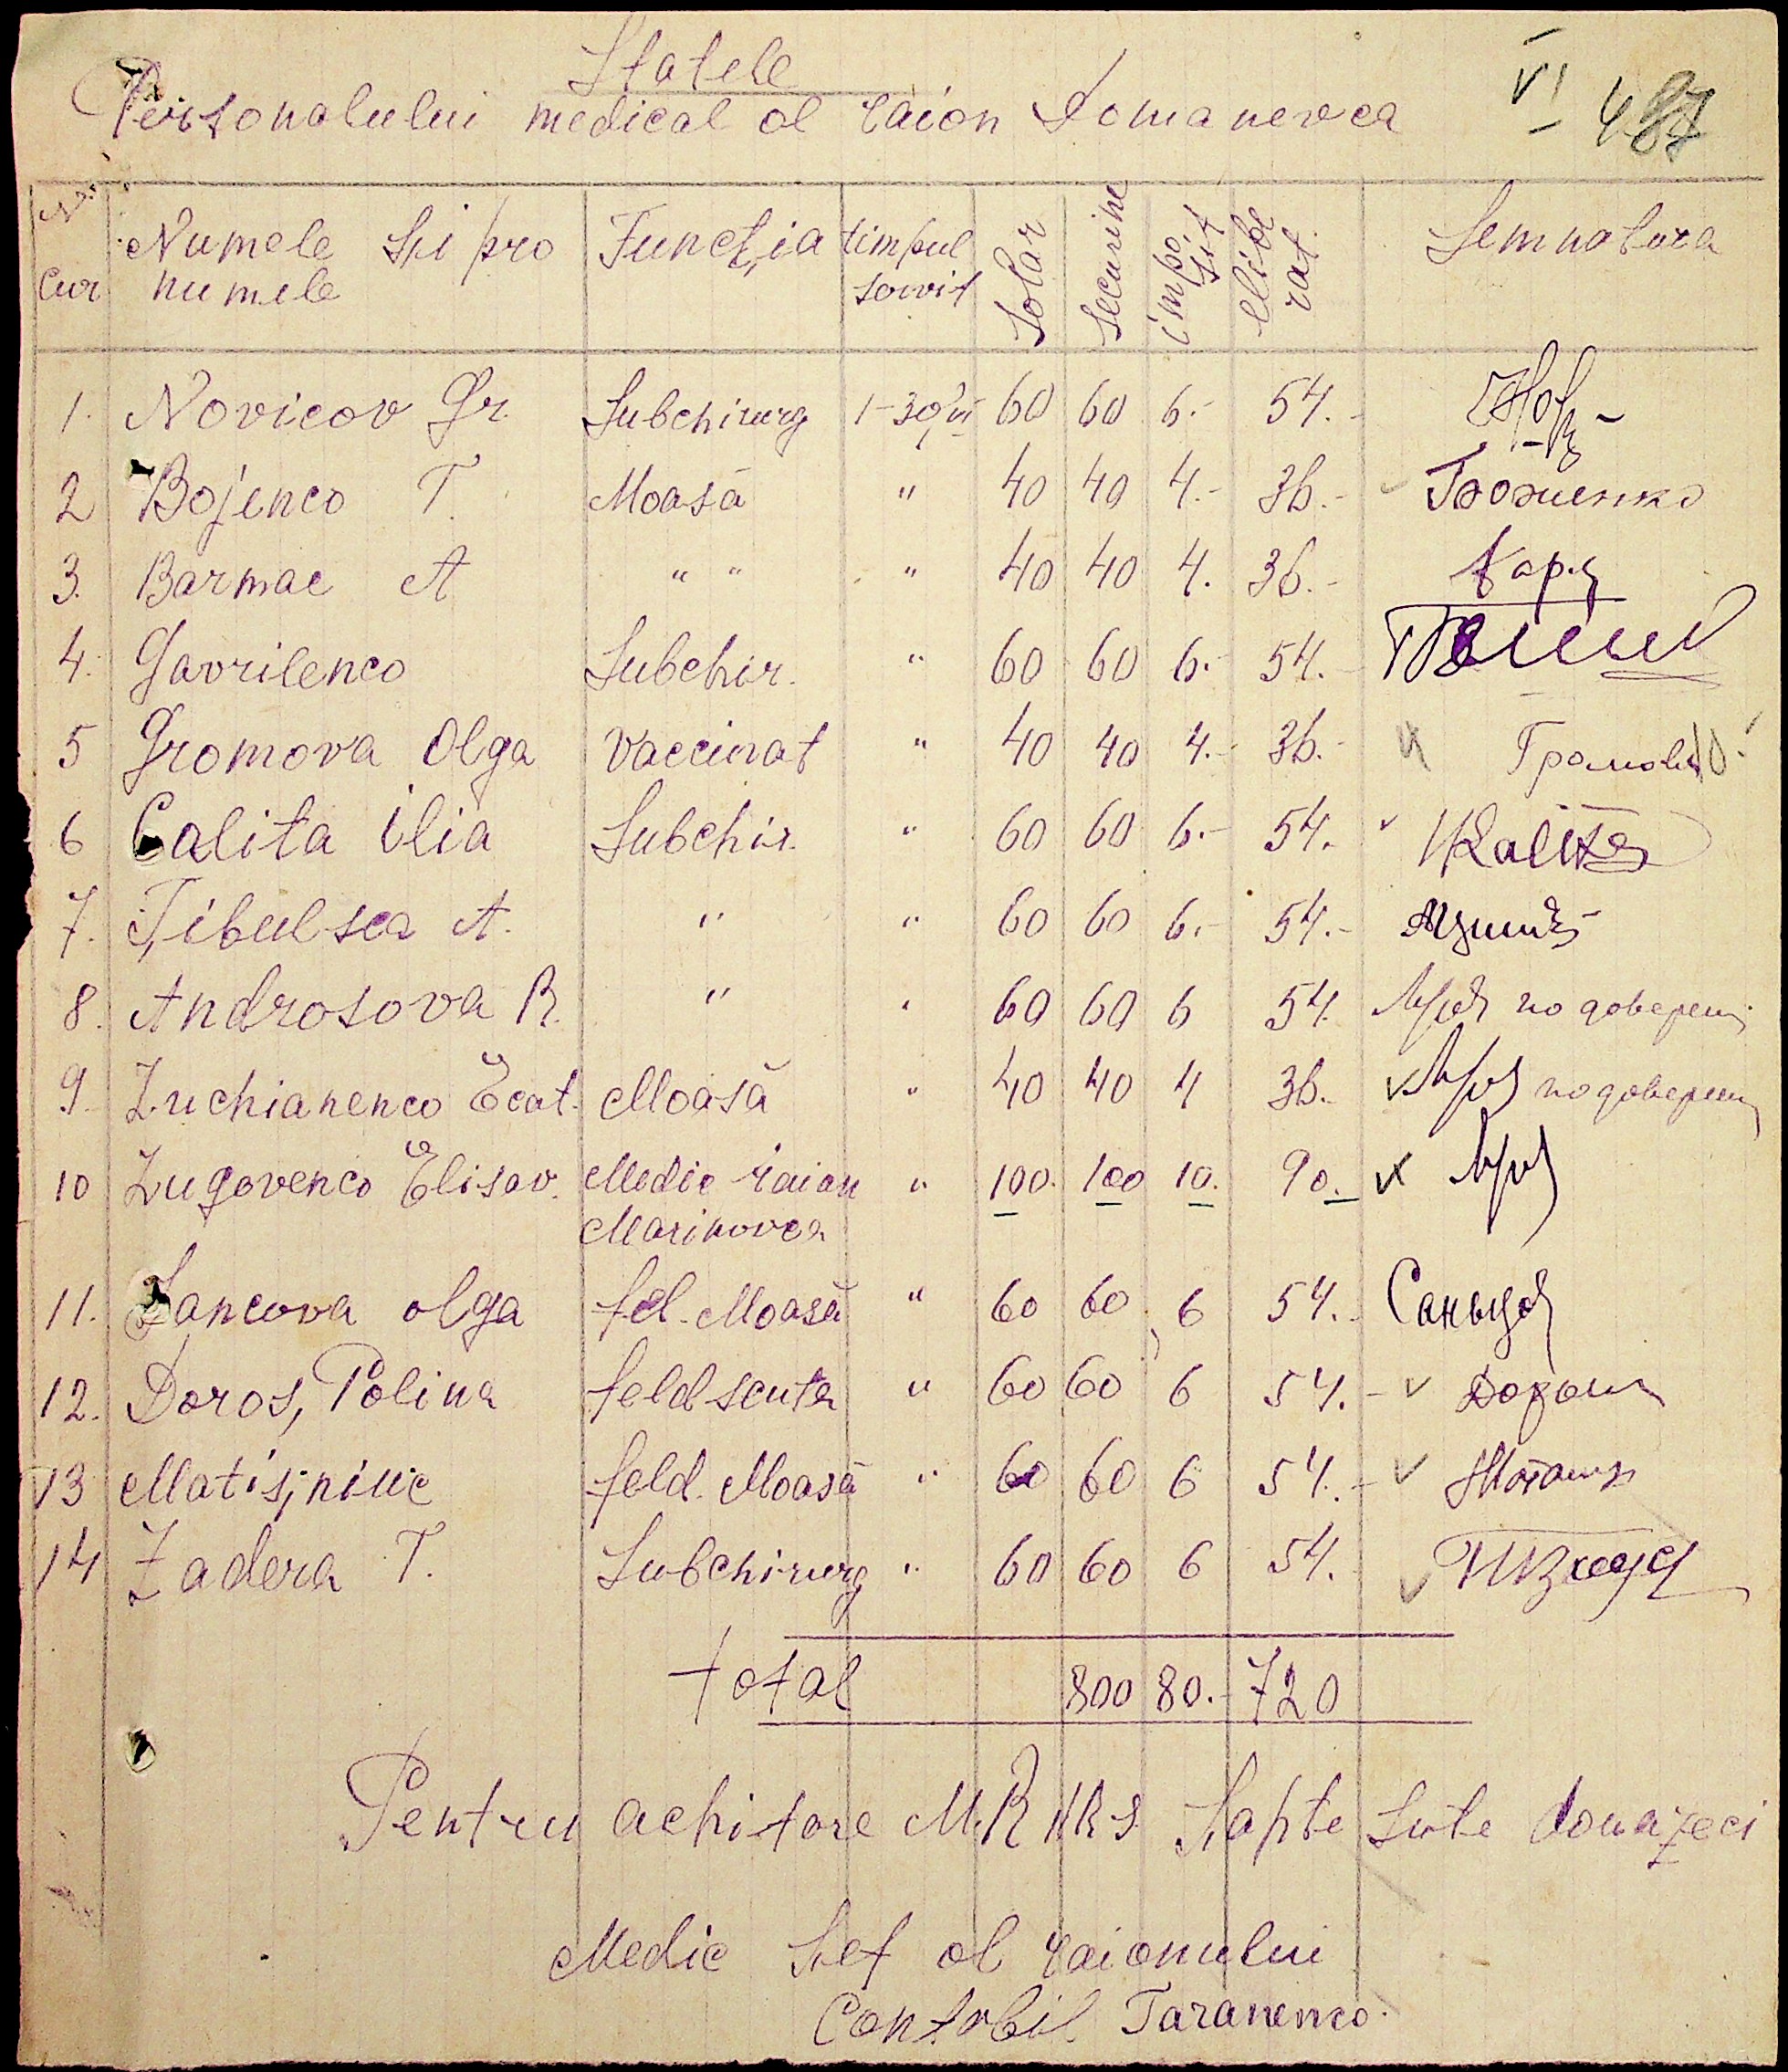 Statele
Personalului medical al raion Domanevca VI 487
N. cur Numele si pro numele Funcția timpul sowit Solar securine impo sit elibe rat Semnatura
1. Novicov Gr. Subchirurg 1-30/VI 60 60 6.- 54.-
2 Bojenco T. Moasă " 40 40 4.- 36.- Боженко
3. Barmac A " " " 40 40 4. 36.-
4. Gavrilenco Subchir. " 60 60 6.- 54.-
5 Gromova Olga Vaccinat " 40 40 4.- 36.- Громова
6 Calita Ilia Subchir. " 60 60 6.- 54. Kalita
7. Țibulsca A. " " 60 60 6.- 54.-
8. Androsova R. " " 60 60 6 54. по доверен
9. Luchianenco Ecat. Moasă " 40 40 4 36. по доверен
10 Lugovenco Elisav. Medic raion Marinovca " 100. 100 10. 90.
11. Sancova olga fel. Moasă " 60 60 6 54.
12. Doroș Polina feldscuta " 60 60 6 54.- Дорош
13 Matișniuc feld. Moasă " 60 60 6 54.-
14 Zadera T. Subchirurg " 60 60 6 54.
total 800 80.- 720
Pentru achitare M.R. Sapte Sute douazeci
Medic Sef al raionului
Contabil Taranenco.